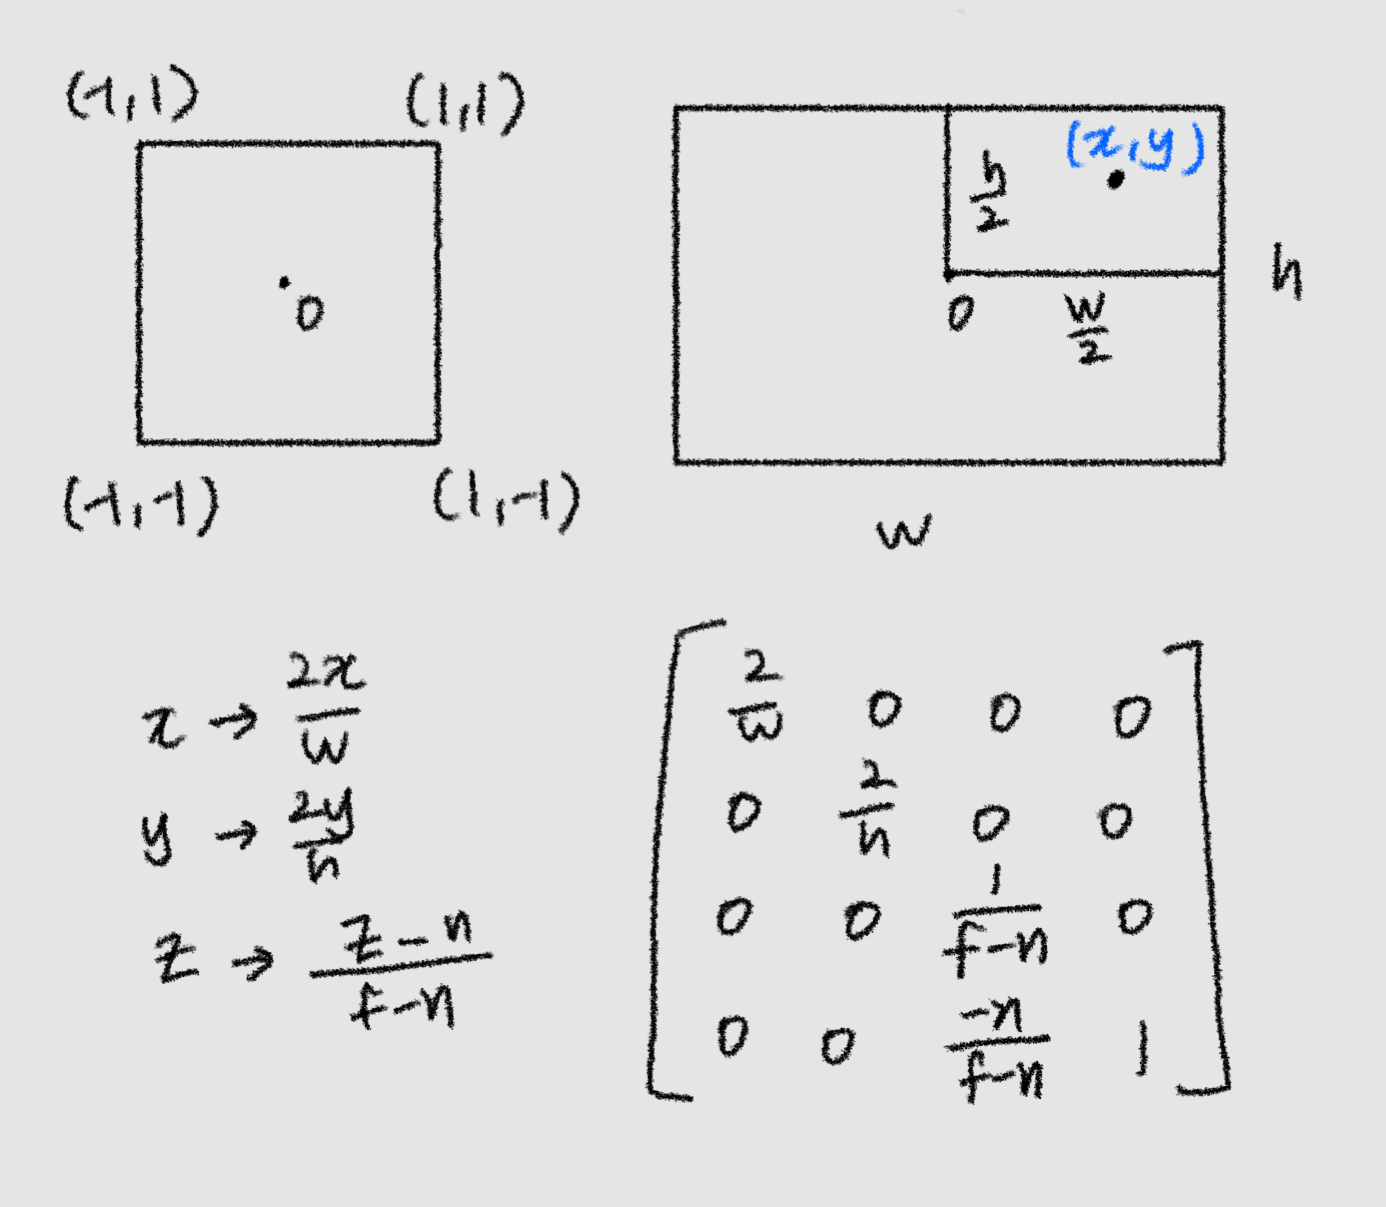 (-1,1)
(1,1)
0
(-1,-1)
(1,-1)
(x,y)
h/2
0
w/2
h
w
x → 2x/w
y → 2y/h
z → z-n/f-n
2/w 0 0 0
0 2/h 0 0
0 0 1/f-n 0
0 0 -n/f-n 1